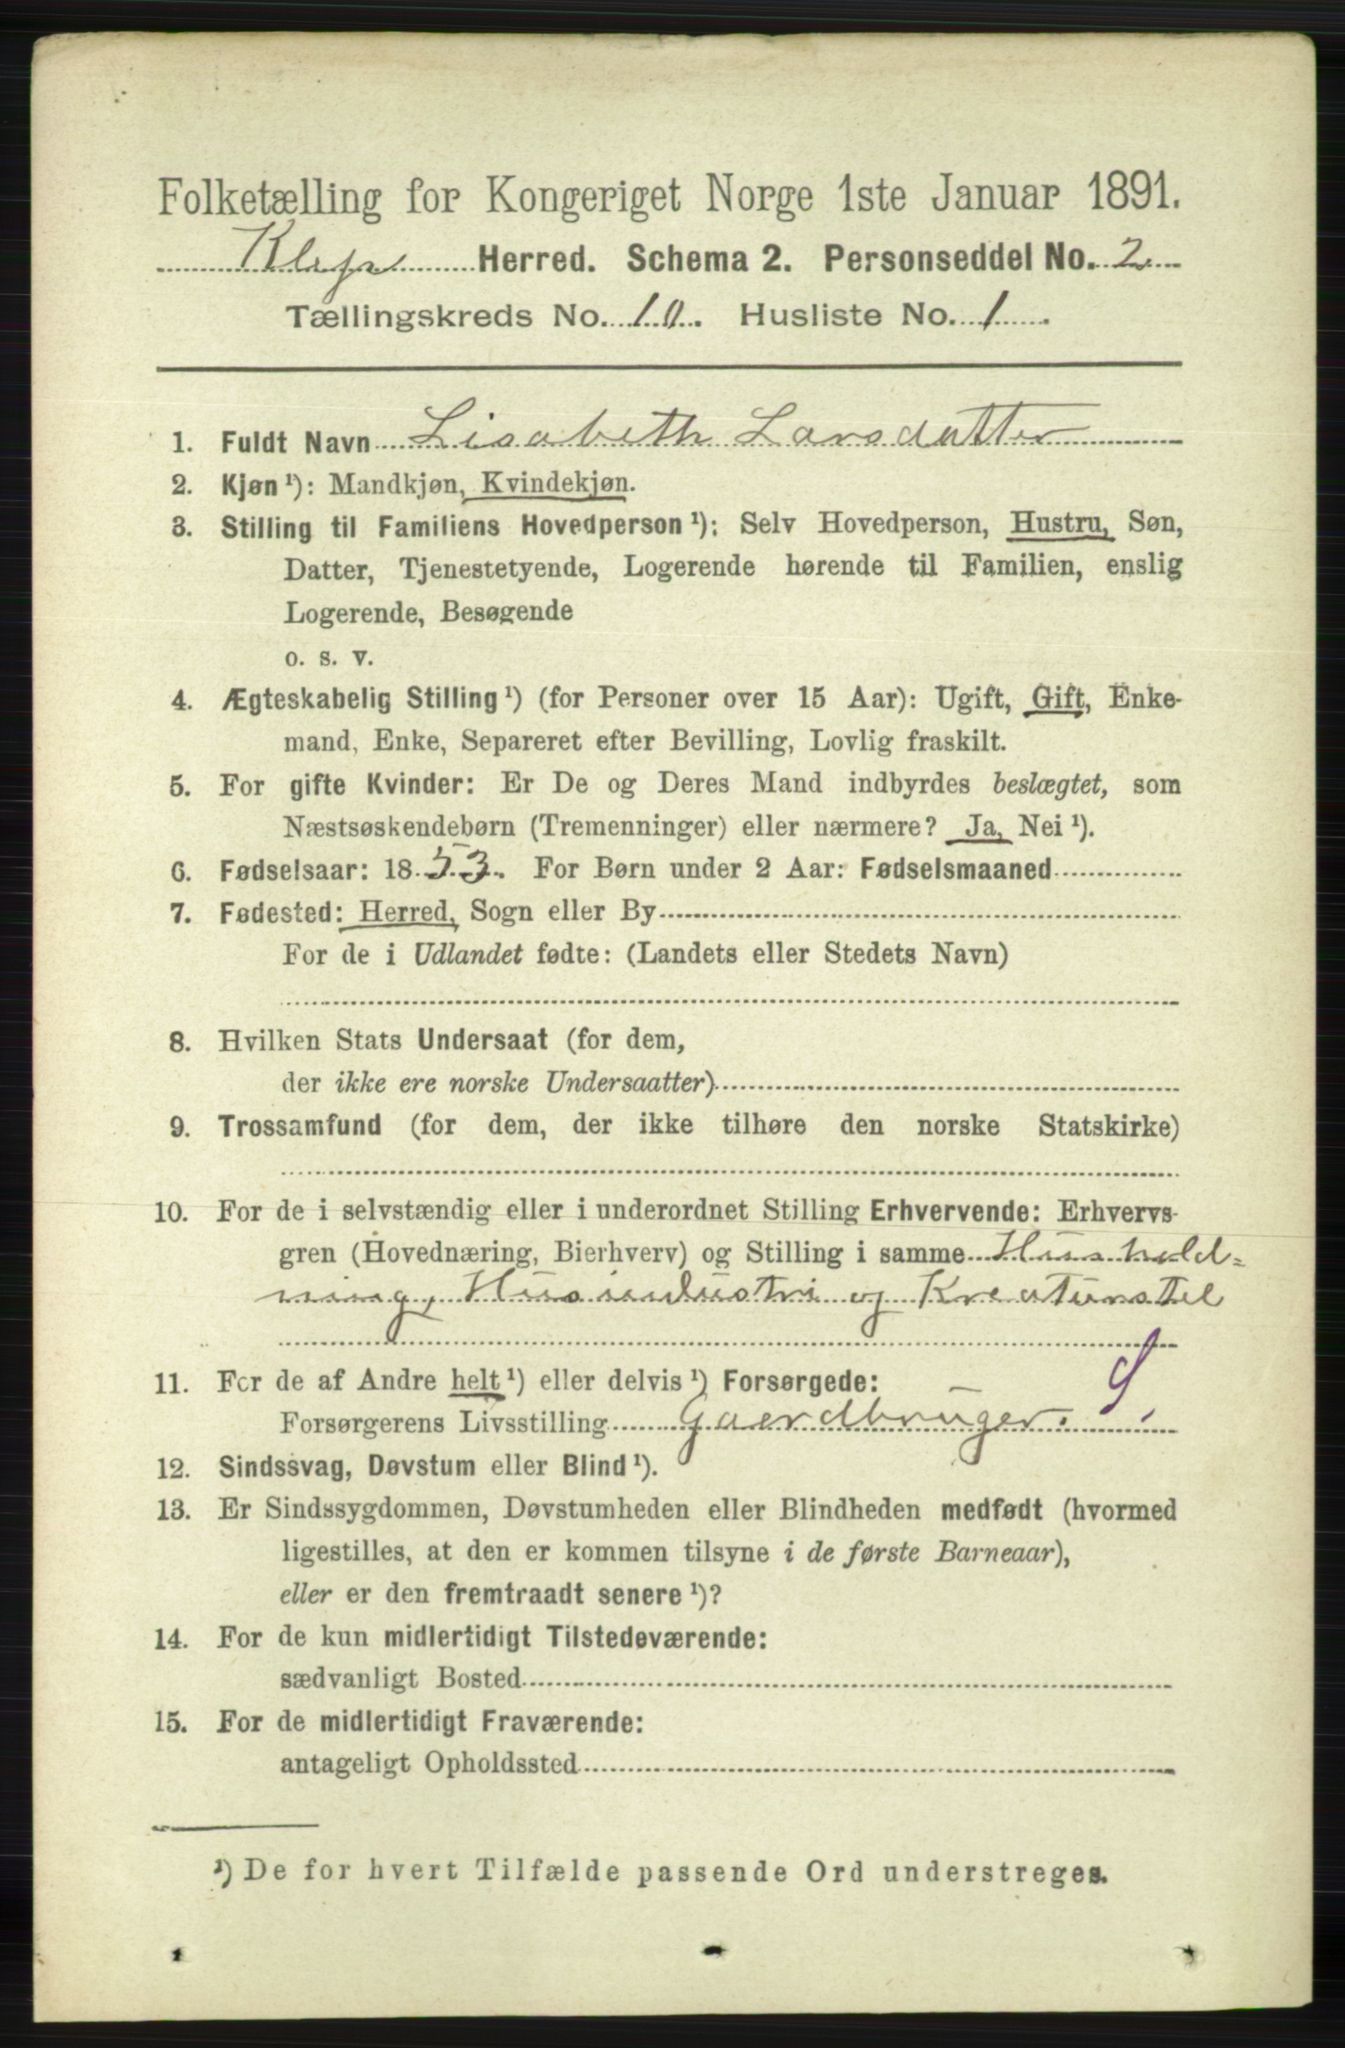 Folketælling for Kongeriget Norge 1ste Januar 1891.
Klep Herred. Schema 2. Personseddel No. 2
Tællingskreds No. 10. Husliste No. 1
1. Fuldt Navn Lisabeth Larsdatter
2. Kjøn ¹): Mandkjøn, Kvindekjøn.
3. Stilling til Familiens Hovedperson ¹): Selv Hovedperson, Hustru, Søn,
Datter, Tjenestetyende, Logerende hørende til Familien, enslig
Logerende, Besøgende
o. s. v.
4. Ægteskabelig Stilling ¹) (for Personer over 15 Aar): Ugift, Gift, Enke-
mand, Enke, Separeret efter Bevilling, Lovlig fraskilt.
5. For gifte Kvinder: Er De og Deres Mand indbyrdes beslægtet, som
Næstsøskendebørn (Tremenninger) eller nærmere? Ja, Nei ¹).
6. Fødselsaar: 1853. For Børn under 2 Aar: Fødselsmaaned
7. Fødested: Herred, Sogn eller By
For de i Udlandet fødte: (Landets eller Stedets Navn)
8. Hvilken Stats Undersaat (for dem,
der ikke ere norske Undersaatter)
9. Trossamfund (for dem, der ikke tilhøre den norske Statskirke)
10. For de i selvstændig eller i underordnet Stilling Erhvervende: Erhvervs-
gren (Hovednæring, Bierhverv) og Stilling i samme Hushold=
ning, Husindustri og Kreaturstel
11. For de af Andre helt ¹) eller delvis ¹) Forsørgede:
Forsørgerens Livsstilling Gaardbruger. S,
12. Sindssvag, Døvstum eller Blind ¹).
13. Er Sindssygdommen, Døvstumheden eller Blindheden medfødt (hvormed
ligestilles, at den er kommen tilsyne i de første Barneaar),
eller er den fremtraadt senere ¹)?
14. For de kun midlertidigt Tilstedeværende:
sædvanligt Bosted
15. For de midlertidigt Fraværende:
antageligt Opholdssted
¹) De for hvert Tilfælde passende Ord understreges.